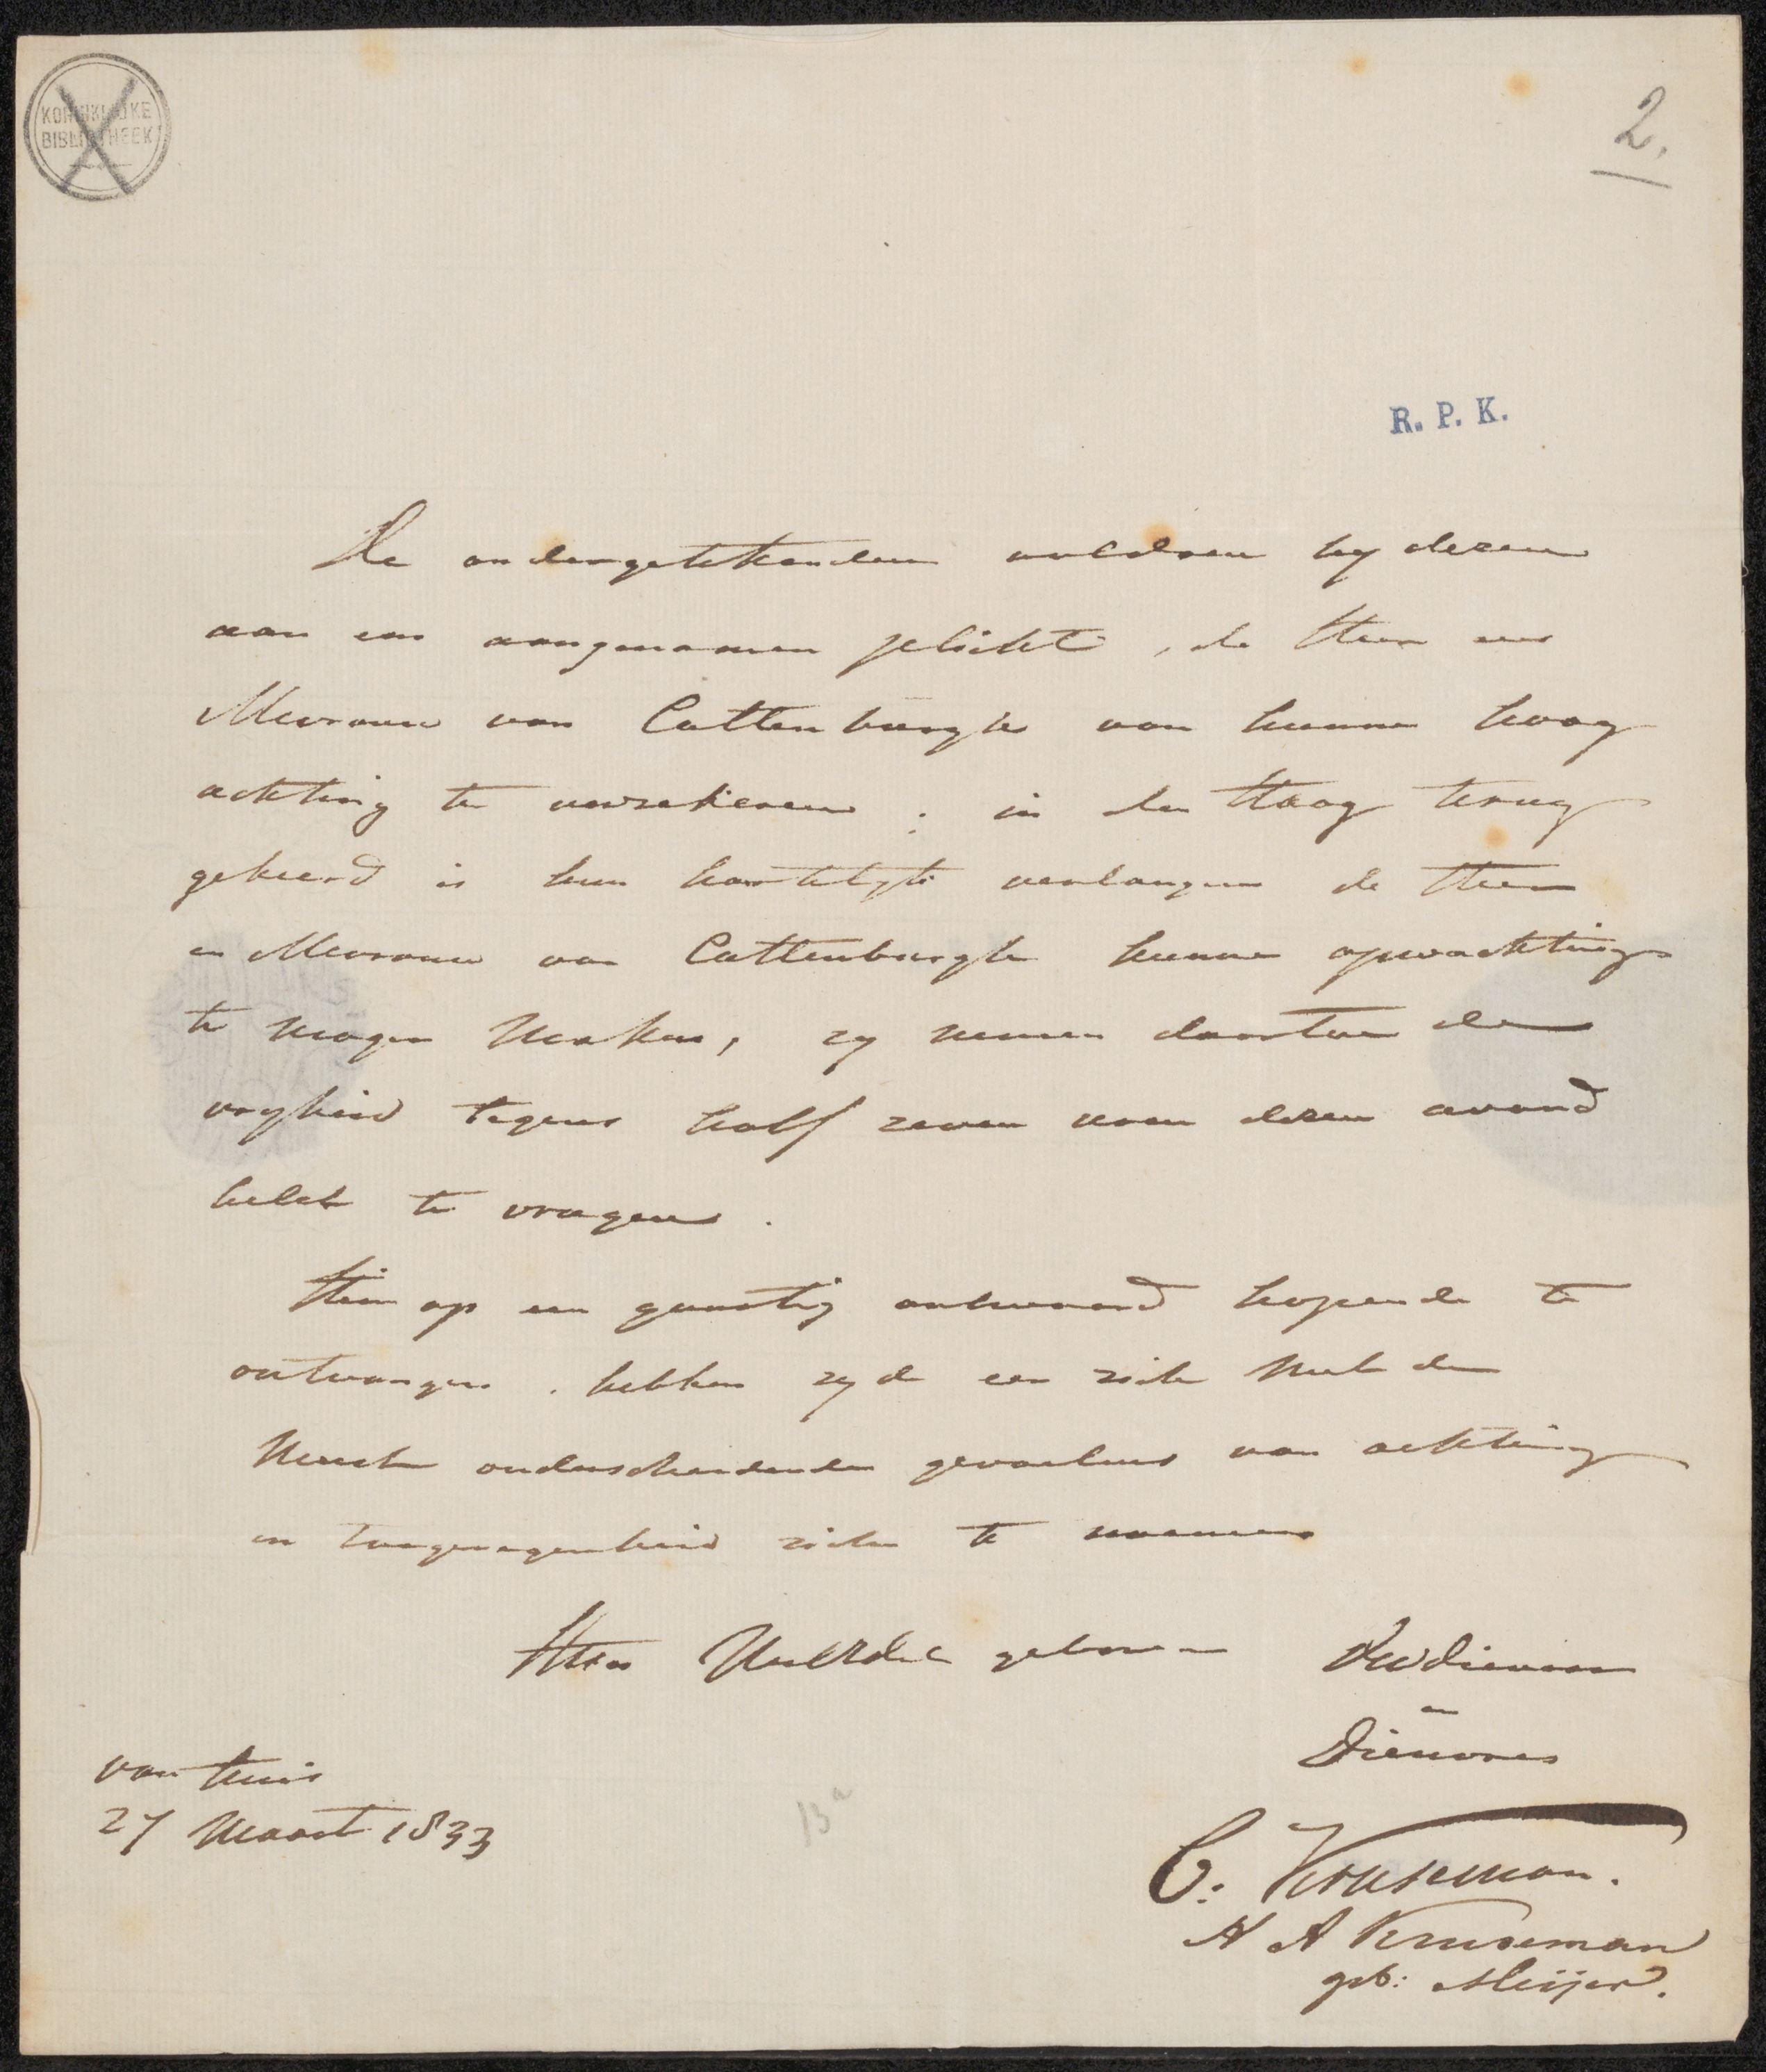 KONINKLIJKE
BIBLIOTHEEK
2.
R. P. K.
De ondergetekenden voldoen by dezen
aan een aangenamen pelicht, de Heer en
Mevrouw van Cattenburgh van hunne hoog
achting te verzekeren; in den Haag terug
gekeerd is hun hartelykst verlangen de Heer
en Mevrouw van Cattenburgh hunne opwachting
te mogen maken, zy nemen daartoe de
vryheid tegens half zeven uren dezen avond
belet te vragen.
Hier op een gunstig antwoord hopende te
ontvangen, hebben zy de eer zich met de
meest onderscheidende gevoelens van achting
en toegenegenheid zich te noemen
geboren
Dw Dienaar
en
Dienares
van huis
27 Maart 1833
13a
C: Kruseman.
H A Kruseman
geb: Meijer.